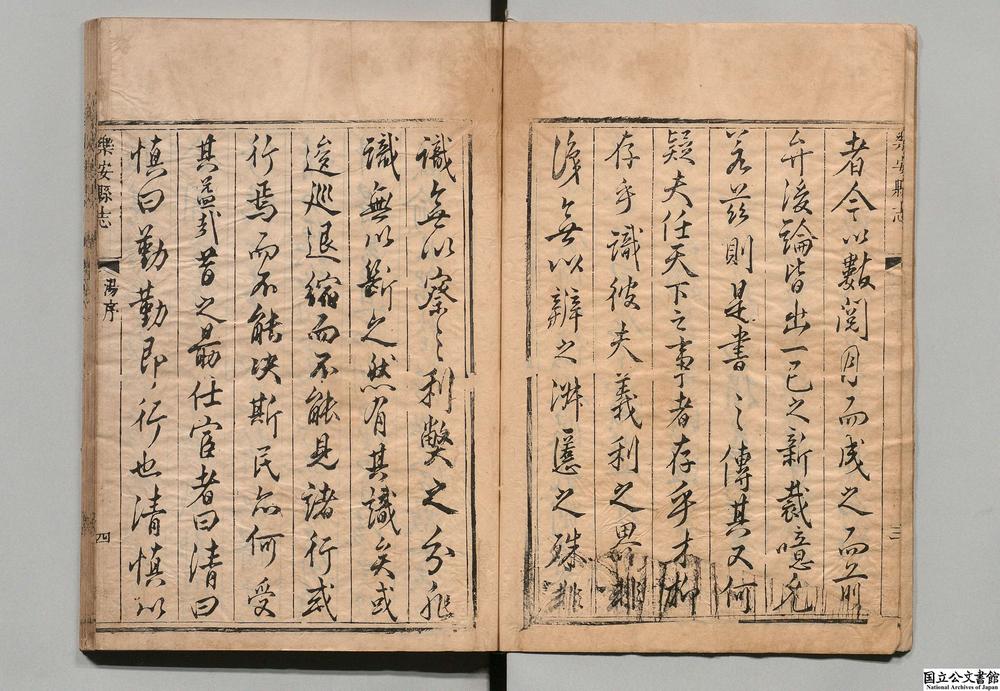 者今以數閱月而成之而前
弁後論皆出一己之新裁噫允
若茲則是書之傳其又何
疑夫任天下之事者存乎才抑
存乎識彼夫義利之界非
識無以辨之淑慝之殊非
識無以察之利弊之分非
識無以斷之然有其識矣或
逡巡退縮而不能見諸行或
行焉而不能決斯民亦何受
其益哉昔之最仕宦者曰清曰
慎曰勤勤即行也清慎以
樂安縣志
三
樂安縣志
湯序
四
国立公文書館
National Archives of Japan